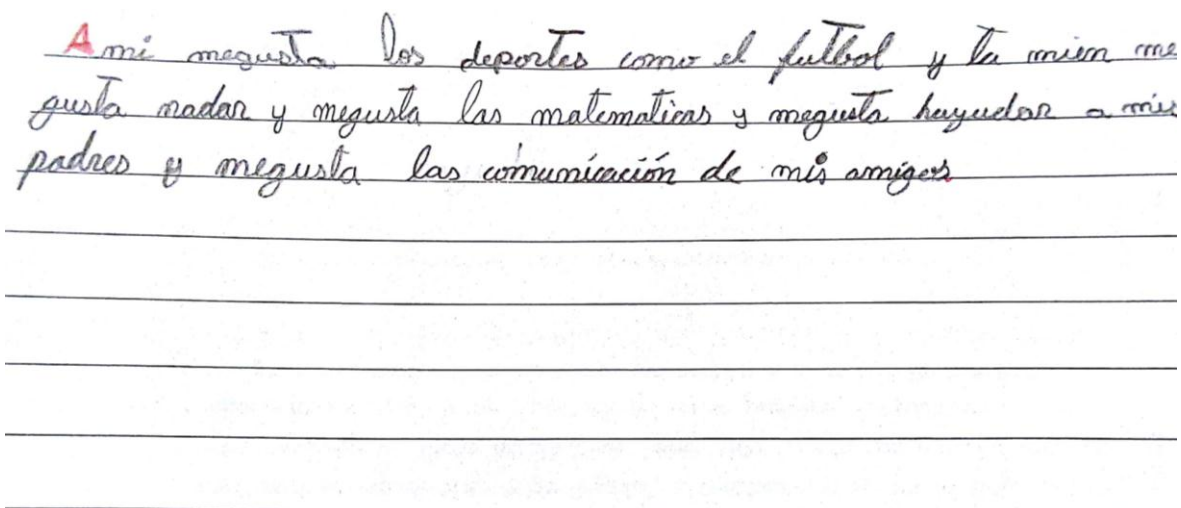 A mi megusta los deportes como el futbol y ta mien me
gusta nadar y megusta las matematicas y megusta hayudar a mis
padres y megusta las comunicación de mis amigos